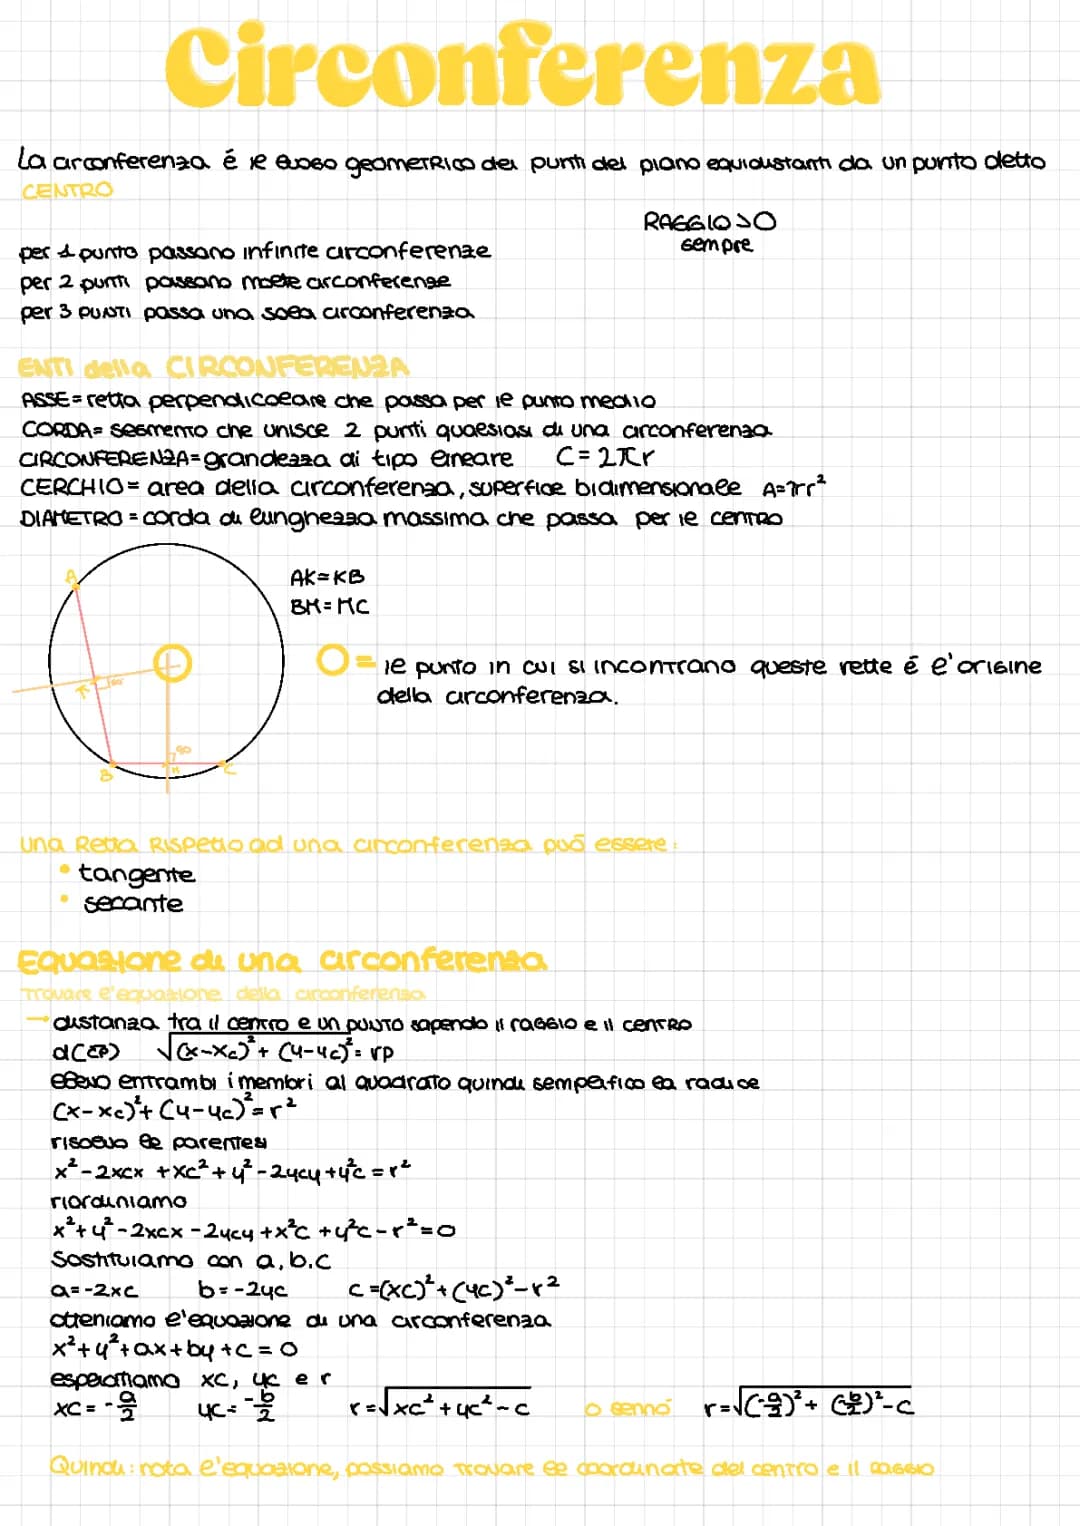 Circonferenza
La circonferenza é il luogo geometrico dei punti del piano equidistanti da un punto detto
CENTRO
RAGGIO>O
sempre
per 1 punto passano infinite circonferenze
per 2 punti passano molte circonferenze
per 3 PUNTI passa una sola circonferenza
ENTI della CIRCONFERENZA
ASSE= retta perpendicolare che passa per il punto medio
CORDA= segmento che unisce 2 punti qualsiasi di una circonferenza
CIRCONFERENZA= grandezza di tipo lineare C=2πr
CERCHIO= area della circonferenza, superfice bidimensionale A=πr²
DIAMETRO= corda di lunghezza massima che passa per il centro
A
AK=KB
BM=MC
O= il punto in cui si incontrano queste rette é l'origine
della circonferenza.
K
90
B
M
C
una Retta Rispetto ad una circonferenza puó essere:
• tangente
• secante
Equazione di una circonferenza
Trovare l'equazione della circonferenza
→ distanza tra il centro e un punto sapendo il raggio e il centro
d(CP) √(x-xc)²+(y-yc)²=rp
elevo entrambi i membri al quadrato quindi sempifico la radice
(x-xc)²+(y-yc)²=r²
risolvo le parentesi
x²-2xcx+xc²+y²-2ycy+y²c=r²
riordiniamo
x²+y²-2xcx-2ycy+x²c+y²c-r²=0
Sostituiamo con a,b,c
a=-2xc b=-2yc c=(xc)²+(yc)²-r²
otteniamo l'equazione di una circonferenza
x²+y²+ax+by+c=0
esplicitiamo xc, yc e r
xc=-a/2 yc=-b/2 r=√xc²+yc²-c o sennó r=√(-a/2)²+(-b/2)²-c
Quindi: nota l'equazione, possiamo trovare le coordinate del centro e il raggio